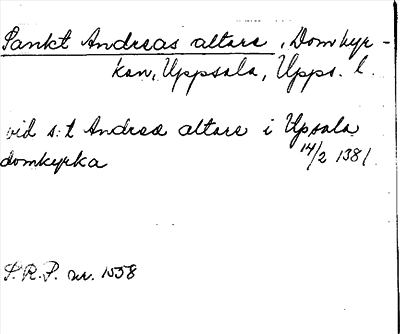 Sankt Andreas altare, Domkyr-
kan, Uppsala, Upps. l.
vid s:t Andreæ altare i Upsala
domkyrka 14/2 1381
S.R.P. nr. 1558